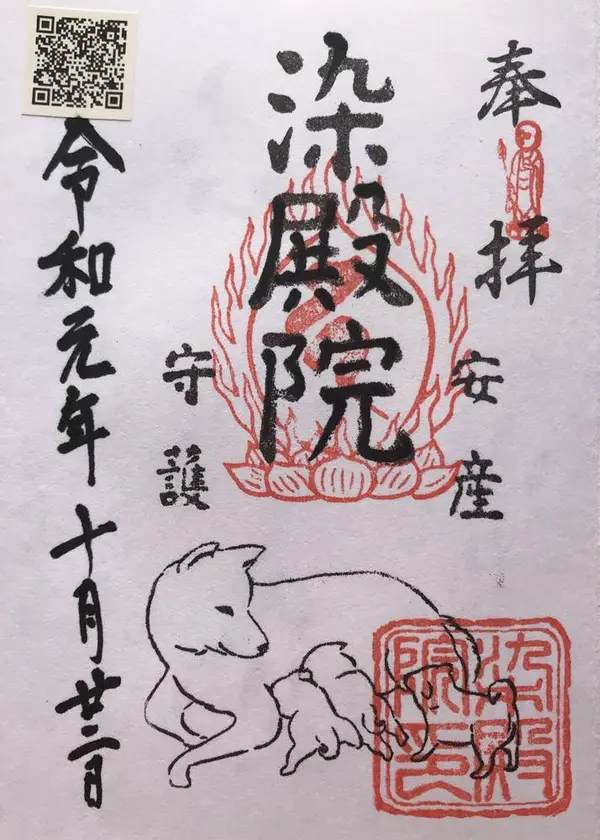 奉拝
安産
染殿院
守護
令和元年十月廿二日
染殿院印